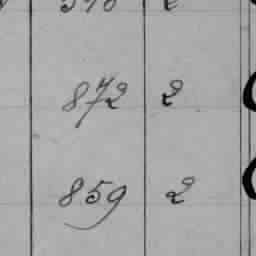 872 2
859 2